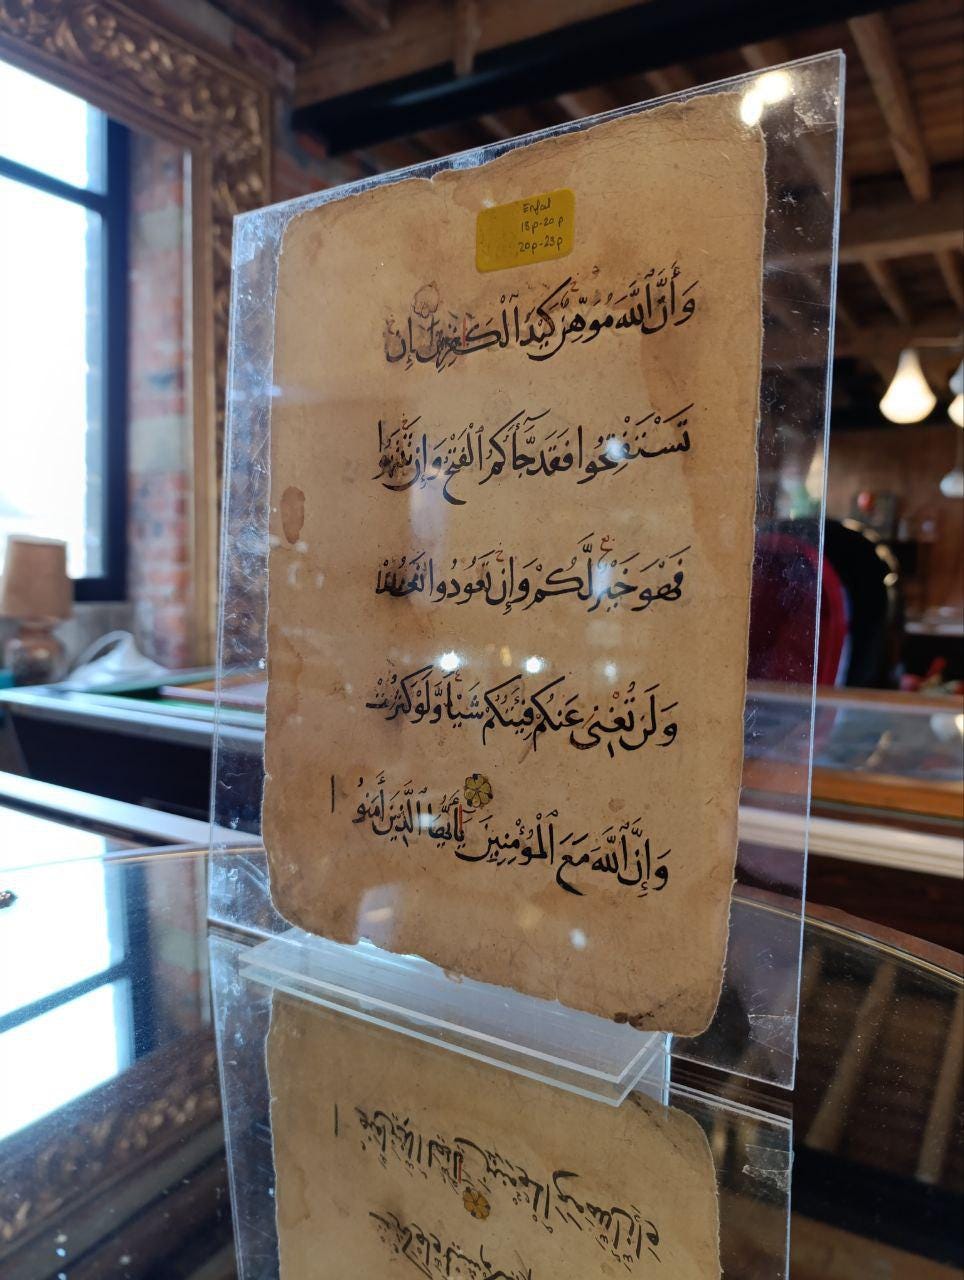 Enfal
18p-20p
20p-23p
وَأَنَّ ٱللَّهَ مُوَهِّنٌ كَيْدَ ٱلْكَٰفِرِينَ إِن
تَسْتَفْتِحُوا فَقَدْ جَّآءَكُمُ ٱلْفَتْحُ وَإِن تَنتَهُوا
فَهْوَ خَيْرٌ لَّكُمْ وَإِن تَعُودُوا نَعُدْ
وَلَن تُغْنِىَ عَنكُمْ فِئَتُكُمْ شَيْـًٔا وَّلَوْ كَثُرَتْ
وَإِنَّ ٱللَّهَ مَعَ ٱلْمُؤْمِنِينَ يَٰٓأَيُّهَا ٱلَّذِينَ ءَامَنُوا